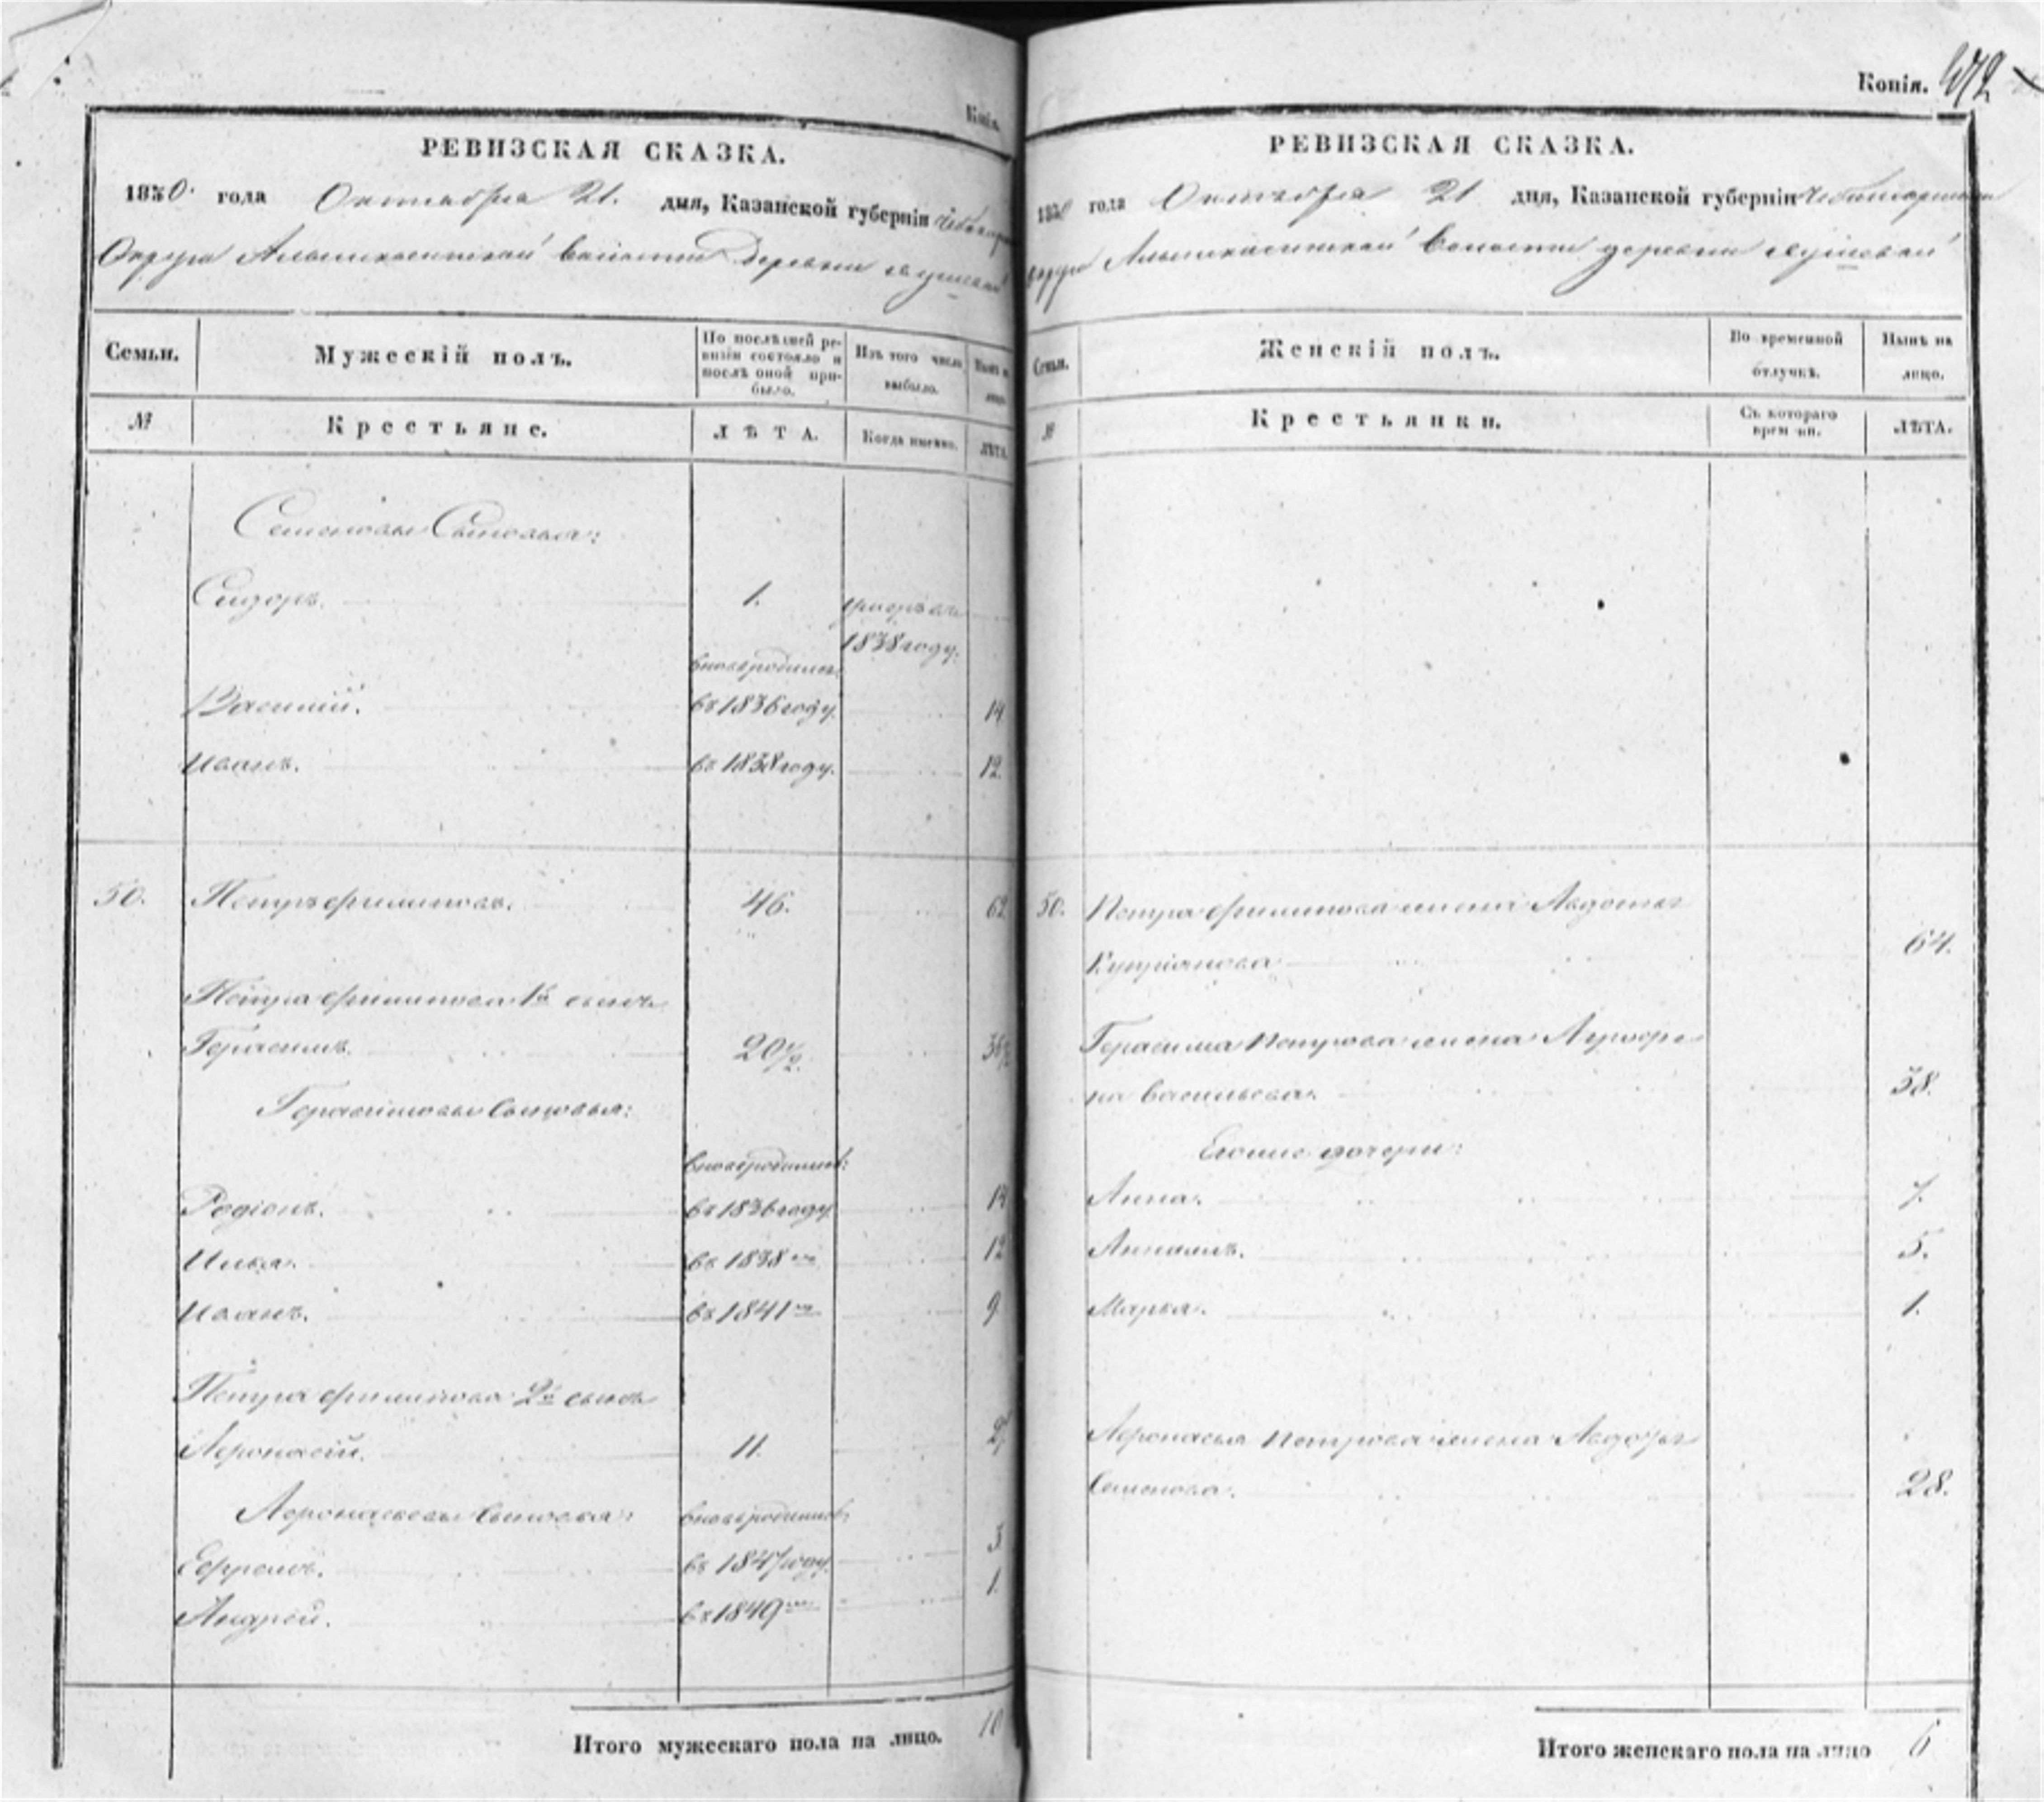 Копія.
РЕВИЗСКАЯ СКАЗКА.
1850 года Октября 21. дня, Казанской губерніи
Округи Алымкасинской волости деревни
Семьи.
Мужескій полъ.
По послѣдней ревизіи состояло и послѣ оной прибыло.
Изъ того числа выбыло.
Нынѣ на лицо.
№
Крестьяне.
ЛѢТА.
Когда именно.
ЛѢТА.
Семеновы Сыновья:
Сидоръ. 1. умеръ въ
1838 году.
вновьродились
Василій. въ 1836 году. 14
Иванъ. въ 1838 году. 12.
50. Петръ Филиповъ. 46. 62
Петра Филипова 1й сынъ
Герасимъ. 20½. 36½
Герасимовы Сыновья:
вновьродились:
Родіонъ. въ 1836 году 14
Илья. въ 1838 12
Иванъ. въ 1841 9
Петра Филипова 2й сынъ
Афонасій. 11. 27
Афонасьевы Сыновья: вновьродились:
Ефремъ. въ 1847 году. 3
Андрей. въ 1849 1
Итого мужескаго пола на лицо. 10
Копія. 472
РЕВИЗСКАЯ СКАЗКА.
1850 года Октября 21 дня, Казанской губерніи
округи Алымкасинской волости деревни
Семьи.
Женскій полъ.
Во временной отлучкѣ.
Нынѣ на лицо.
№
Крестьянки.
Съ котораго времени.
ЛѢТА.
50. Петра Филипова жена Авдотья
Купріянова 64.
Герасима Петрова жена Агрофе-
на Васильева. 38.
Егоже дочери:
Анна. 7.
5.
Марья. 1.
Афонасья Петрова жена
Семенова. 28.
Итого женскаго пола на лицо 6